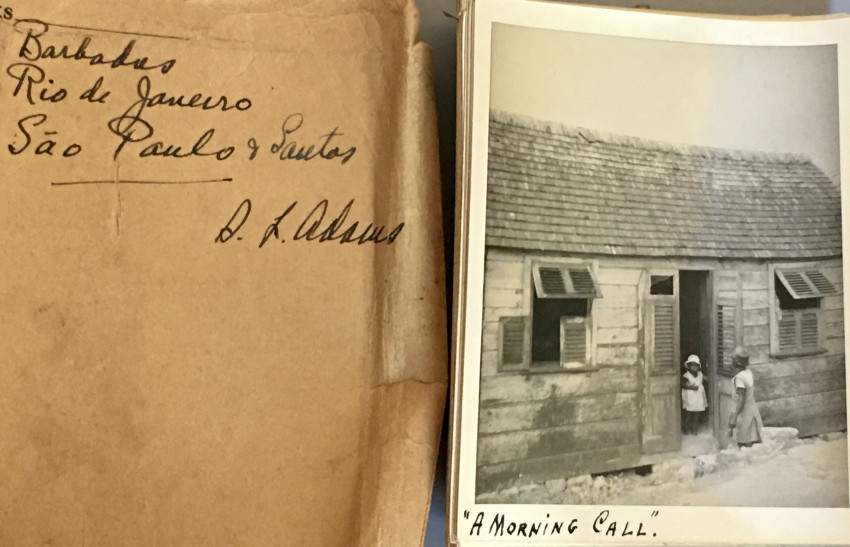 Barbados
Rio de Janeiro
São Paulo & Santos
D. L. Adams
"A MORNING CALL".